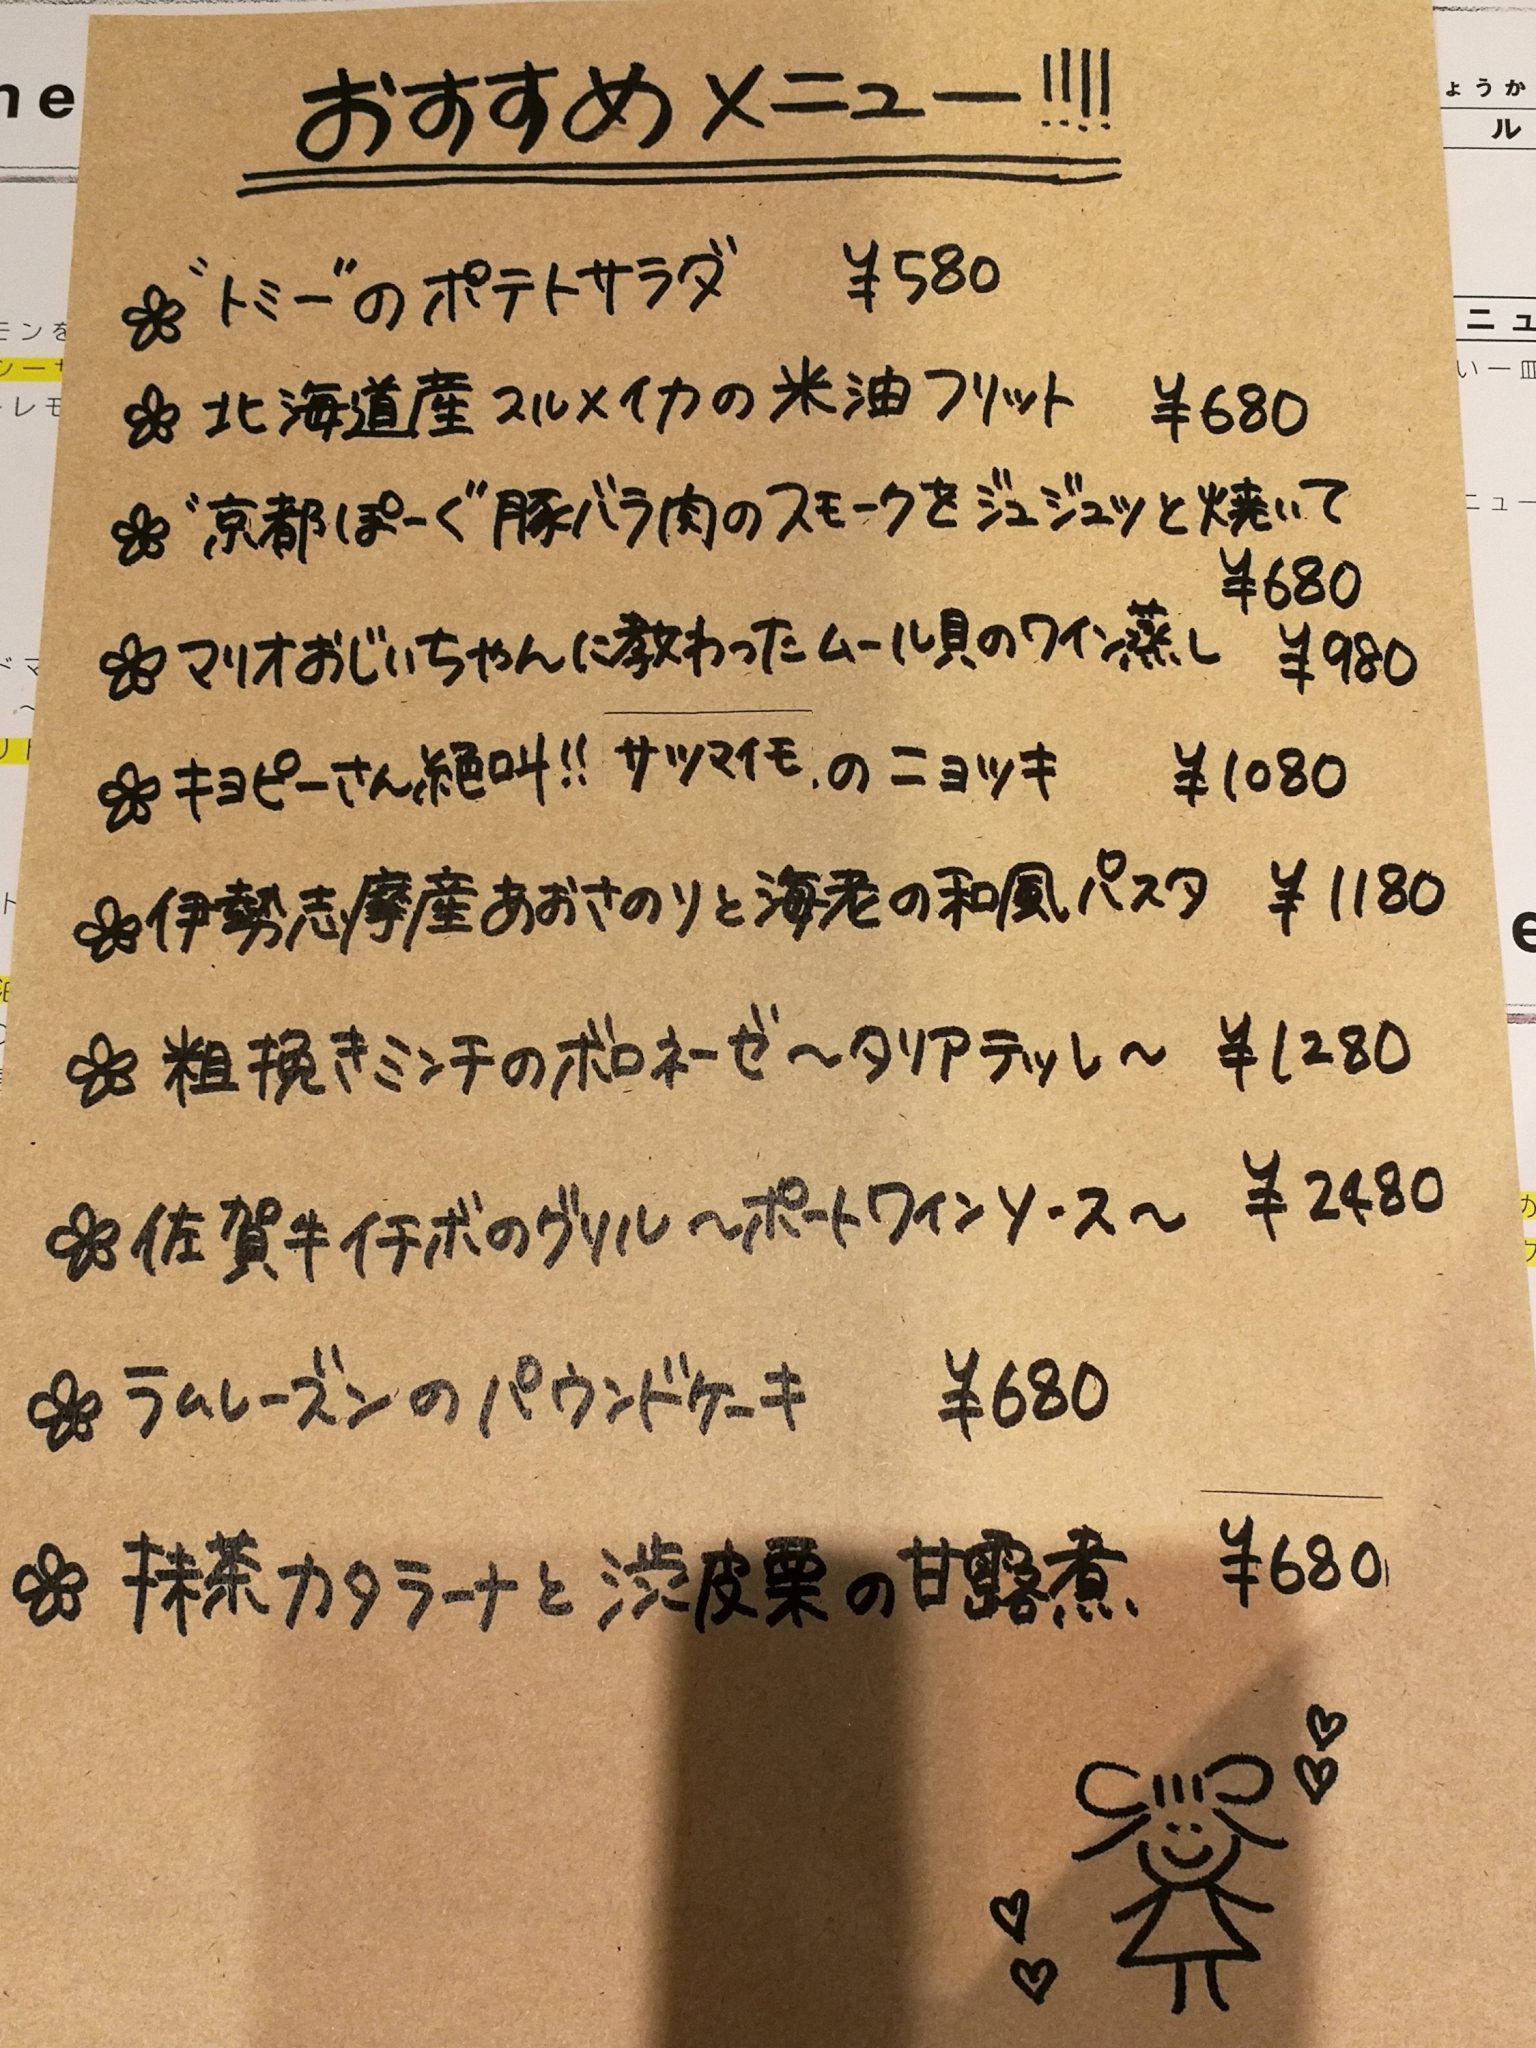 おすすめメニュー!!!!
"トミー"のポテトサラダ ¥580
北海道産スルメイカの米油フリット ¥680
"京都ぽーく"豚バラ肉のスモークをジュジュッと焼いて
¥680
マリオおじいちゃんに教わったムール貝のワイン蒸し ¥980
キョピーさん絶叫!! サツマイモのニョッキ ¥1080
伊勢志摩産あおさのりと海老の和風パスタ ¥1180
粗挽きミンチのボロネーゼ〜タリアテッレ〜 ¥1280
佐賀牛イチボのグリル〜ポートワインソース〜 ¥2480
ラムレーズンのパウンドケーキ ¥680
抹茶カタラーナと渋皮栗の甘露煮 ¥680
ne
ょうか
ル
モンを
レモ
ニュ
い一皿
ニュー
e